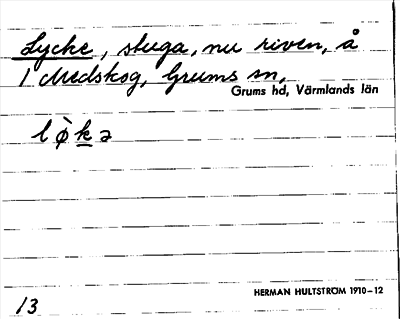 Lycke, stuga, nu riven, å
1 Medskog, Grums sn,
Grums hd, Värmlands län
l ø̀ k̲ ə
HERMAN HULTSTRÖM 1910–12
13